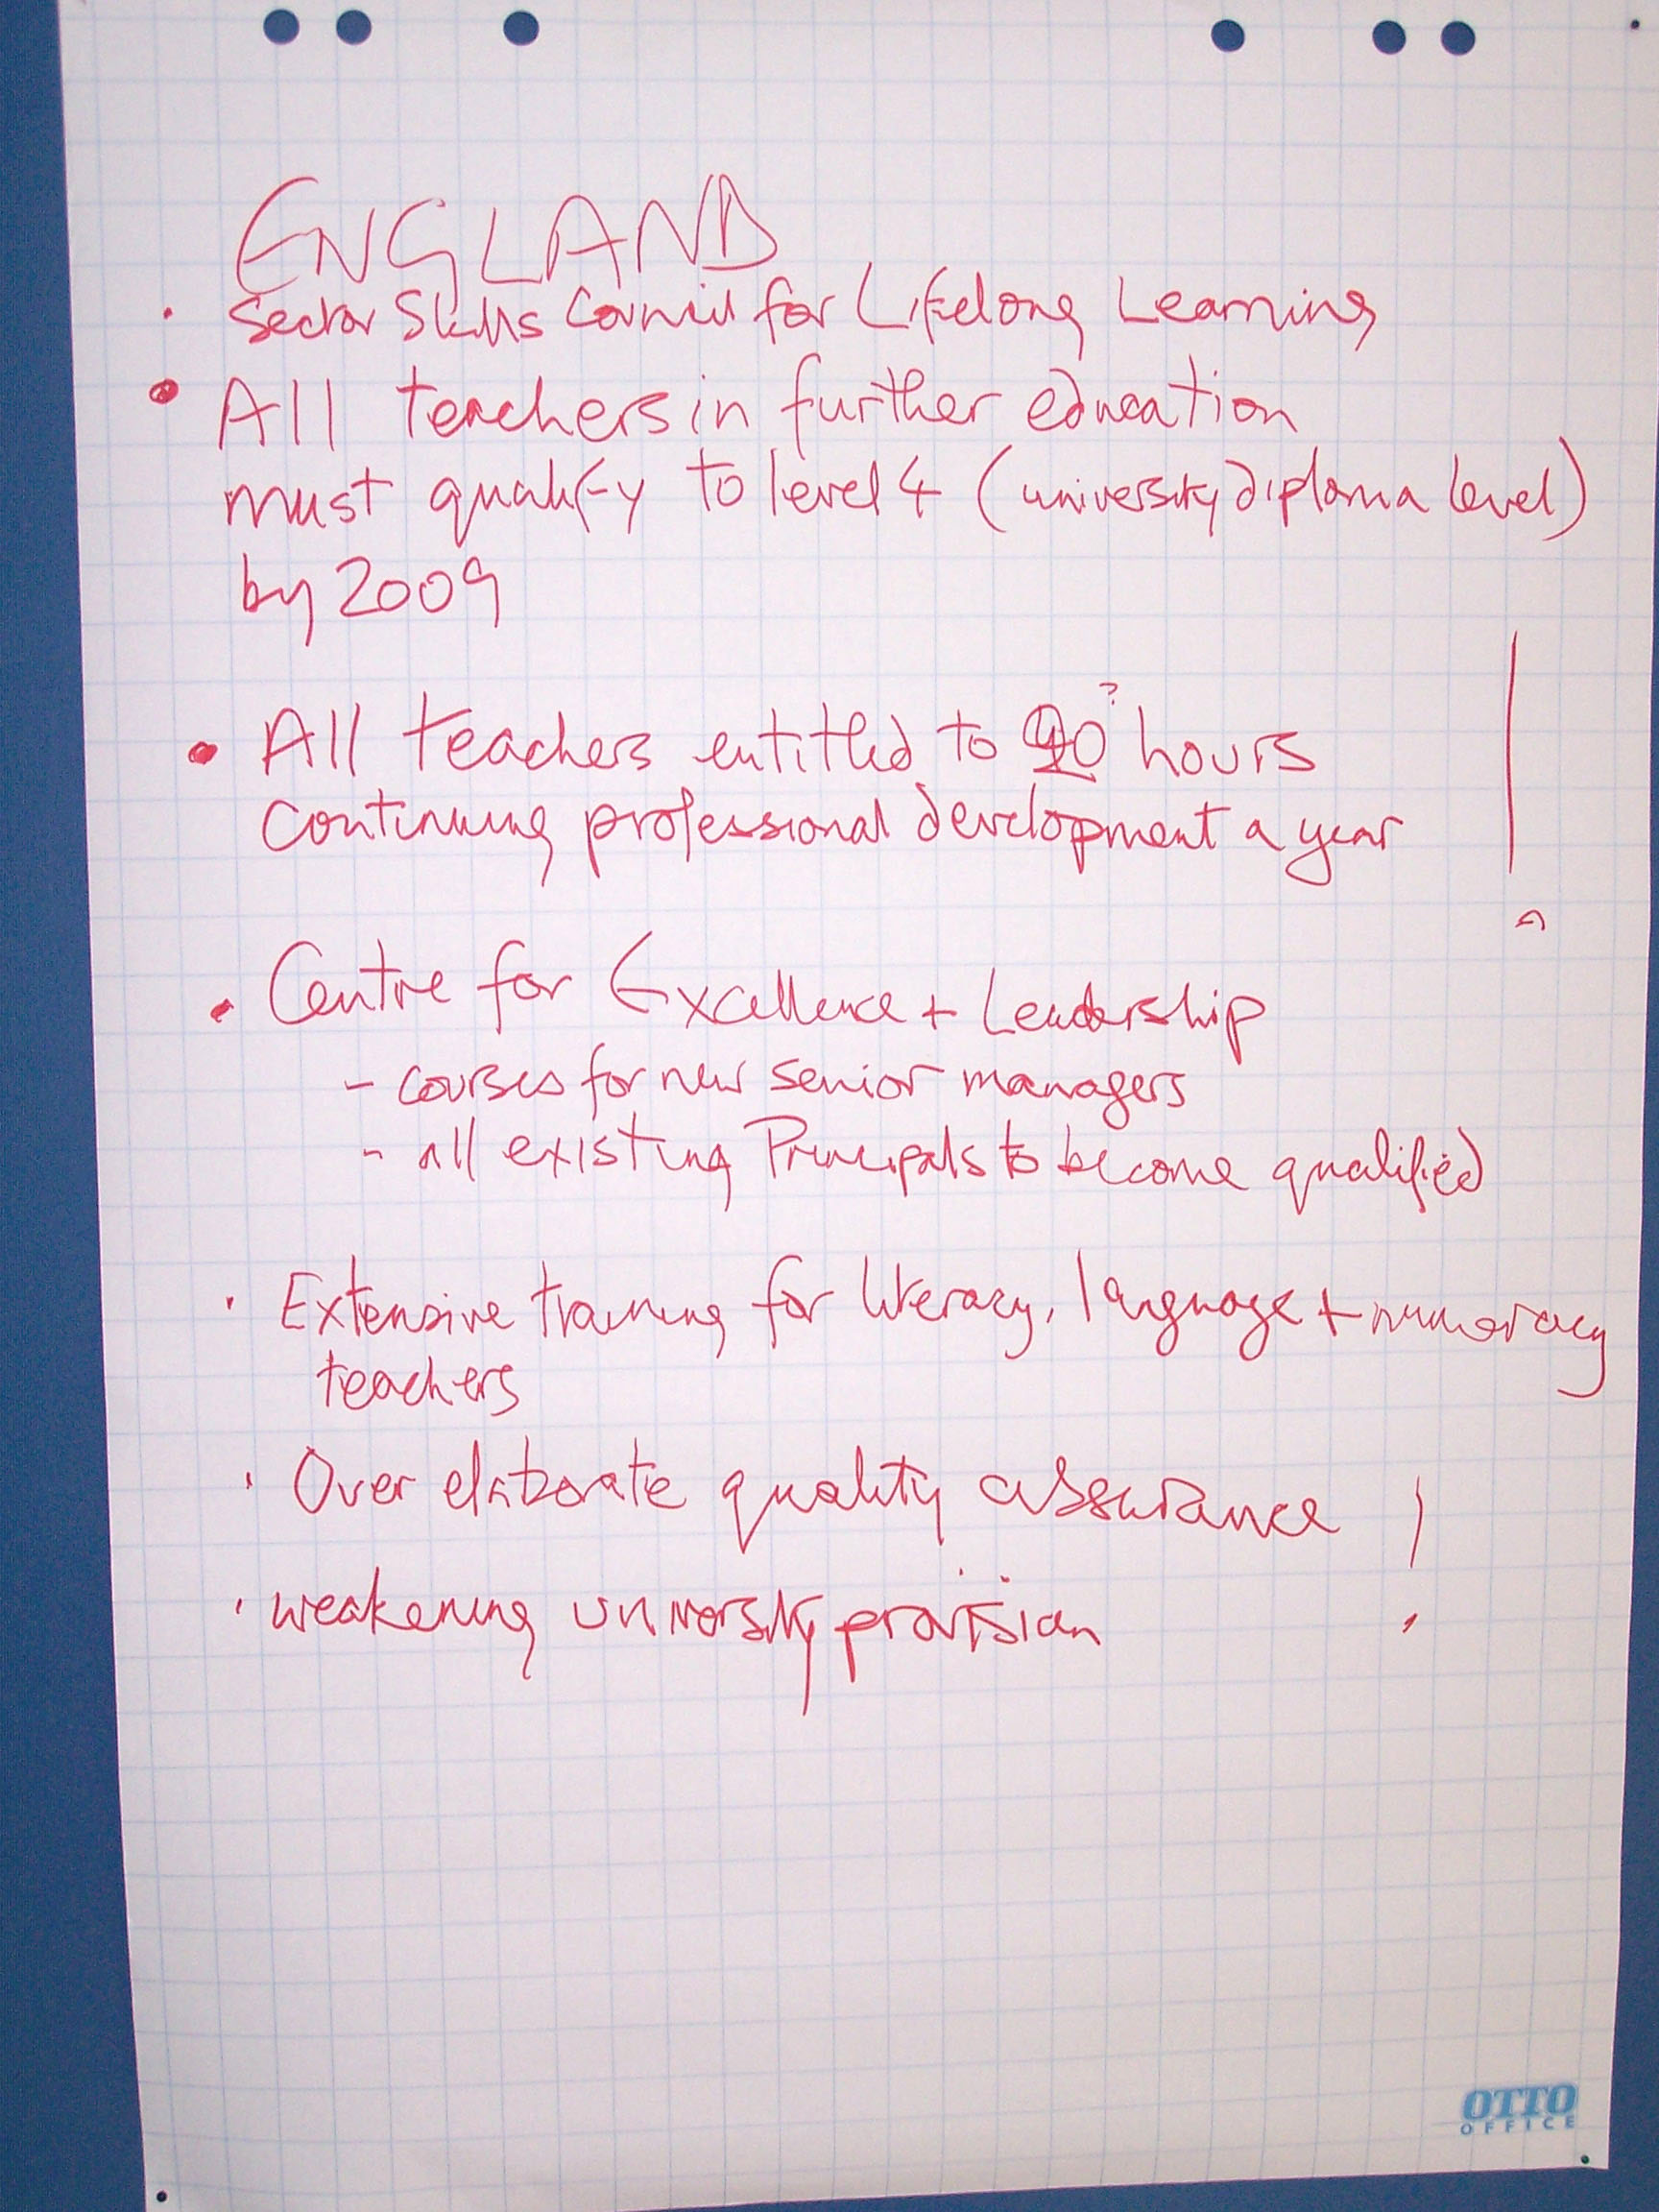 ENGLAND
· Sector Skills Council for Lifelong Learning
• All teachers in further education
must qualify to level 4 (university diploma level)
by 2009
• All teachers entitled to ? hours
continuing professional development a year
• Centre for Excellence + Leadership
- courses for new senior managers
- all existing Principals to become qualified
· Extensive training for literacy, language + numeracy
teachers
· Over elaborate quality assurance !
· weakening university provision
OTTO
OFFICE